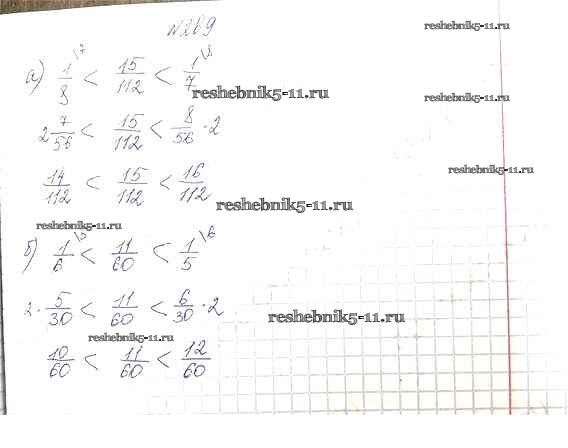 №269
reshebnik5-11.ru
а) 1/8 \7 < 15/112 < 1/7 \8
reshebnik5-11.ru
reshebnik5-11.ru
2 7/56 < 15/112 < 8/56 · 2
14/112 < 15/112 < 16/112
reshebnik5-11.ru
reshebnik5-11.ru
reshebnik5-11.ru
б) 1/6 \5 < 11/60 < 1/5 \6
2 · 5/30 < 11/60 < 6/30 · 2
reshebnik5-11.ru
reshebnik5-11.ru
10/60 < 11/60 < 12/60